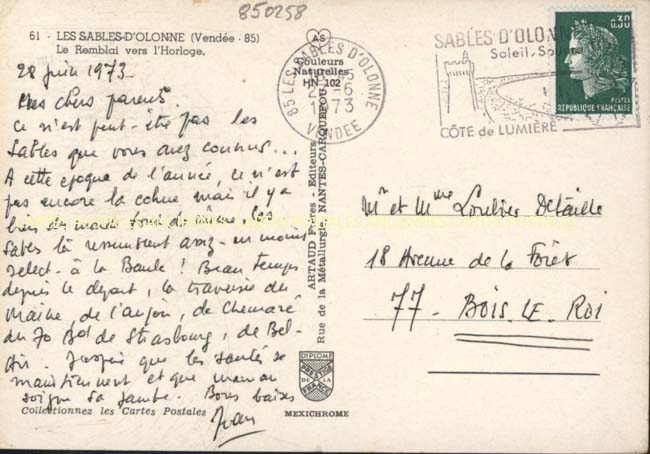 850258
61 - LES SABLES-D'OLONNE (Vendée - 85)
Le Remblai vers l'Horloge.
28 juin 1973
Mes chers parents.
Ce n'est peut-être pas les
Sables que vous avez connus...
A cette époque de l'année, ce n'est
pas encore la cohue mais il y a
bien du monde tout de même, les
Sables là ressemblent assez - en moins
select - à la Baule ! Beau temps
depuis le départ, la traversée du
Maine, de l'anjou, de
du 70 Bd de Strasbourg, de Bel-
Air. J'espère que les santés se
maintiennent et que maman
soigne sa jambe. Bons baisers
Jean
Collectionnez les Cartes Postales
AS
Couleurs
Naturelles
HN 102
ARTAUD Frères - Editeurs
Rue de la Métallurgie, NANTES-CARQUEFOU
DIPLOME
PRESTIGE
DE LA
FRANCE
MEXICHROME
85 LES SABLES D'OLONNE
-6
1973
VENDEE
SABLES D'OLONNE
Soleil, Sports
CÔTE de LUMIÈRE
0,30
POSTES
REPUBLIQUE FRANÇAISE
Mr et Mme Loubier Détaille
18 Avenue de la Forêt
77 - BOIS. LE. ROI